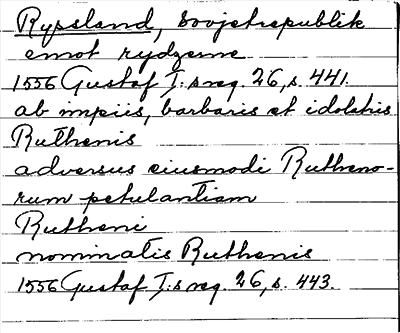 Ryssland, Sovjetrepublik
emot rydzerne
1556 Gustaf I:s reg. 26, s. 441.
ab impiis, barbaris et idolatris
Ruthenis
adversus eiusmodi Rutheno-
rum petulantiam
Rutheni
nominatis Ruthenis
1556 Gustaf I:s reg. 26, s. 443.